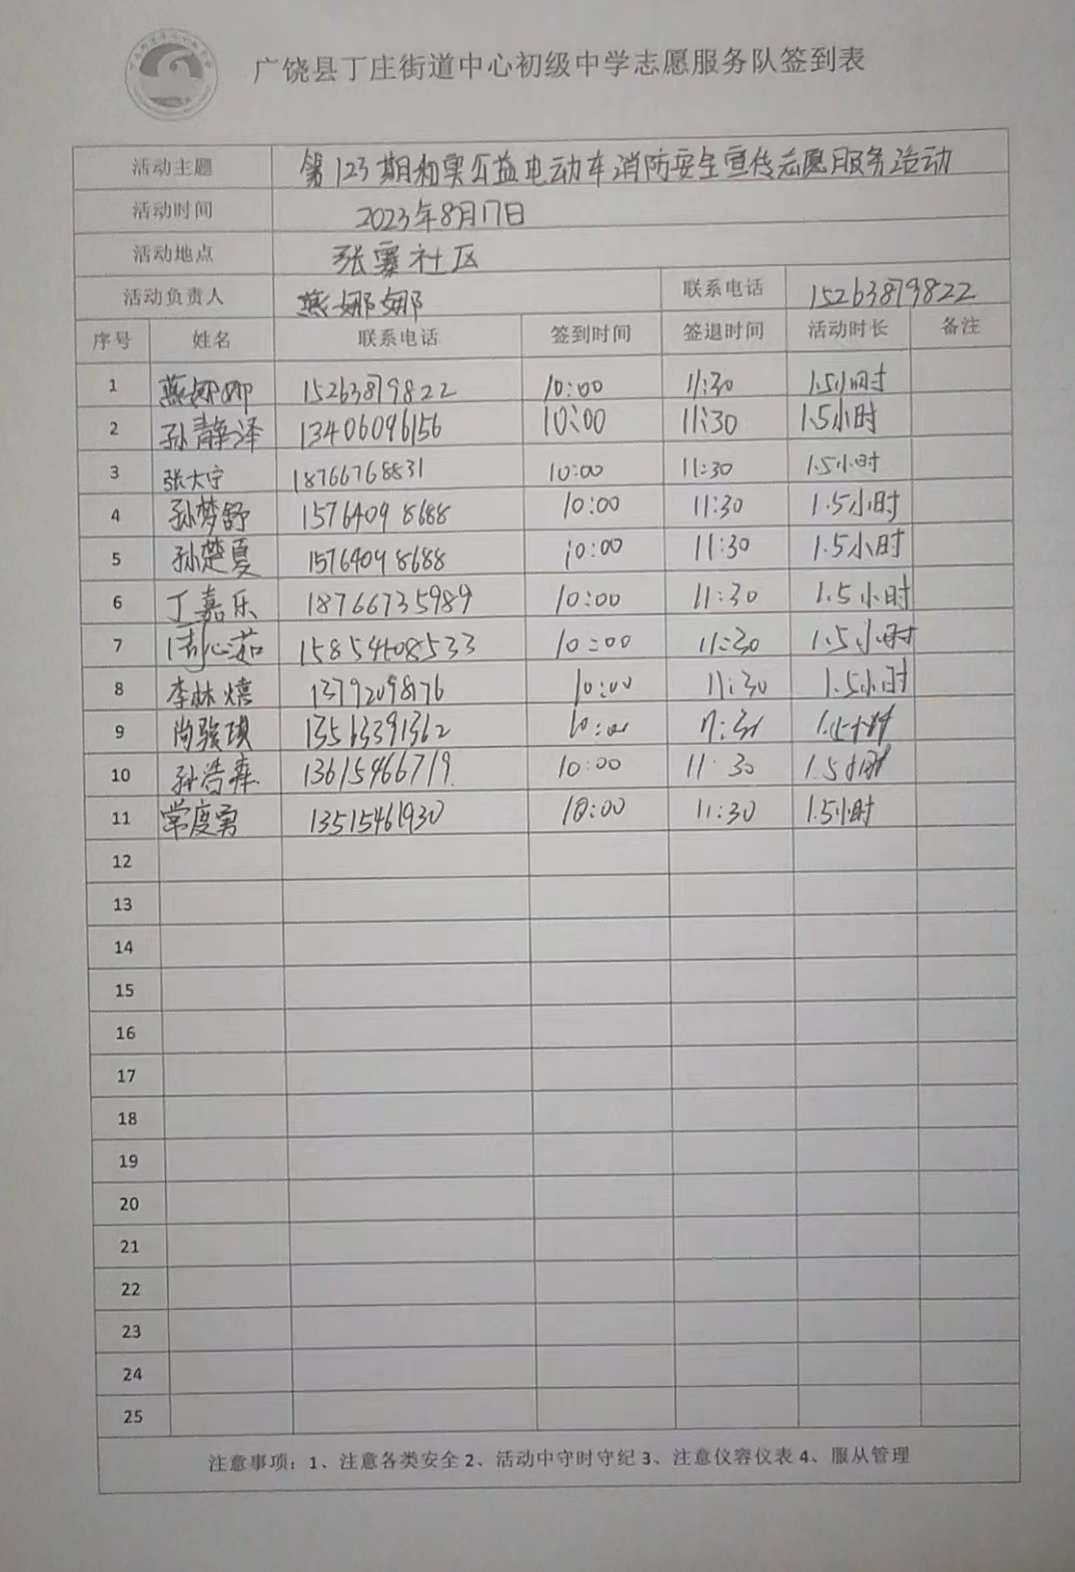 广饶县丁庄街道中心初级中学志愿服务队签到表
活动主题 第123期和奥公益电动车消防安全宣传志愿服务活动
活动时间 2023年8月17日
活动地点 张寨社区
活动负责人 燕娜娜 联系电话 15263879822
序号 姓名 联系电话 签到时间 签退时间 活动时长 备注
1 燕娜娜 15263879822 10:00 11:30 1.5小时
2 孙静泽 13406096156 10:00 11:30 1.5小时
3 张大宁 18766768831 10:00 11:30 1.5小时
4 孙梦舒 15764098688 10:00 11:30 1.5小时
5 孙楚夏 15764098688 10:00 11:30 1.5小时
6 丁嘉乐 18766735989 10:00 11:30 1.5小时
7 周心茹 15854608533 10:00 11:30 1.5小时
8 李林熺 13792098176 10:00 11:30 1.5小时
9 尚骏琪 13563391362 10:00 11:30 1.5小时
10 孙浩 13615466719 10:00 11:30 1.5小时
11 常度勇 13515461930 10:00 11:30 1.5小时
12
13
14
15
16
17
18
19
20
21
22
23
24
25
注意事项：1、注意各类安全 2、活动中守时守纪 3、注意仪容仪表 4、服从管理